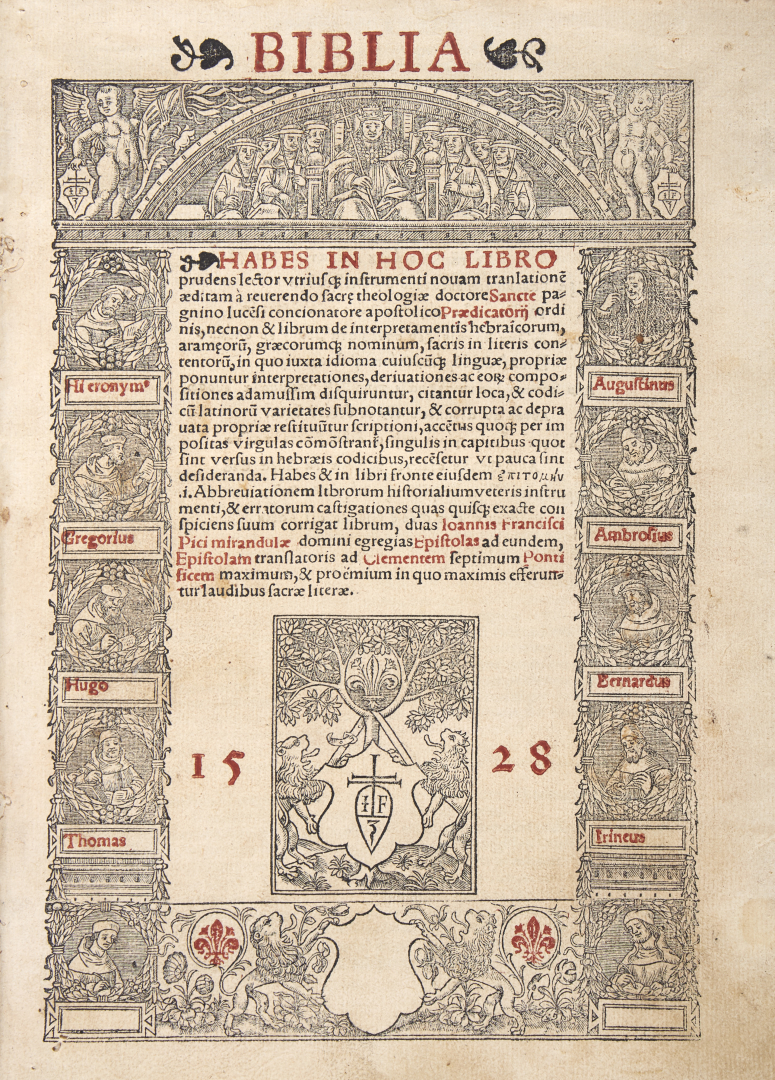 BIBLIA
HABES IN HOC LIBRO
prudens lector vtriusq; instrumenti nouam tranlationē
æditam à reuerendo sacrę theologiæ doctore Sancte pa-
gnino lucēsi concionatore apostolico Prædicatorij ordi
nis, necnon & librum de interpretamentis hebraicorum,
aramęorū, græcorumq; nominum, sacris in literis con-
tentorū, in quo iuxta idioma cuiuscūq; linguæ, propriæ
ponuntur interpretationes, deriuationes ac eorꝫ compo-
sitiones adamussim disquiruntur, citantur loca, & codi-
cū latinorū varietates subnotantur, & corrupta ac depra
uata propriæ restituūtur scriptioni, accētus quoq; per im
positas virgulas cōmōstrant̃, singulis in capitibus quot
sint versus in hebræis codicibus, recēsetur vt pauca sint
desideranda. Habes & in libri fronte eiusdem ἐπιτομὴν
.i. Abbreuiationem Itbrorum historialium veteris instru
menti, & erratorum castigationes quas quisq; exacte con
spiciens suum corrigat librum, duas Ioannis Francisci
Pici mirandulæ domini egregias Epistolas ad eundem,
Epistolam translatoris ad Clementem septimum Ponti
ficem maximum, & proëmium in quo maximis efferun-
tur laudibus sacræ literæ.
Hieronymꝰ
Gregorius
Hugo
Thomas
Augustinus
Ambrosius
Bernardus
Irineus
15 28
I F